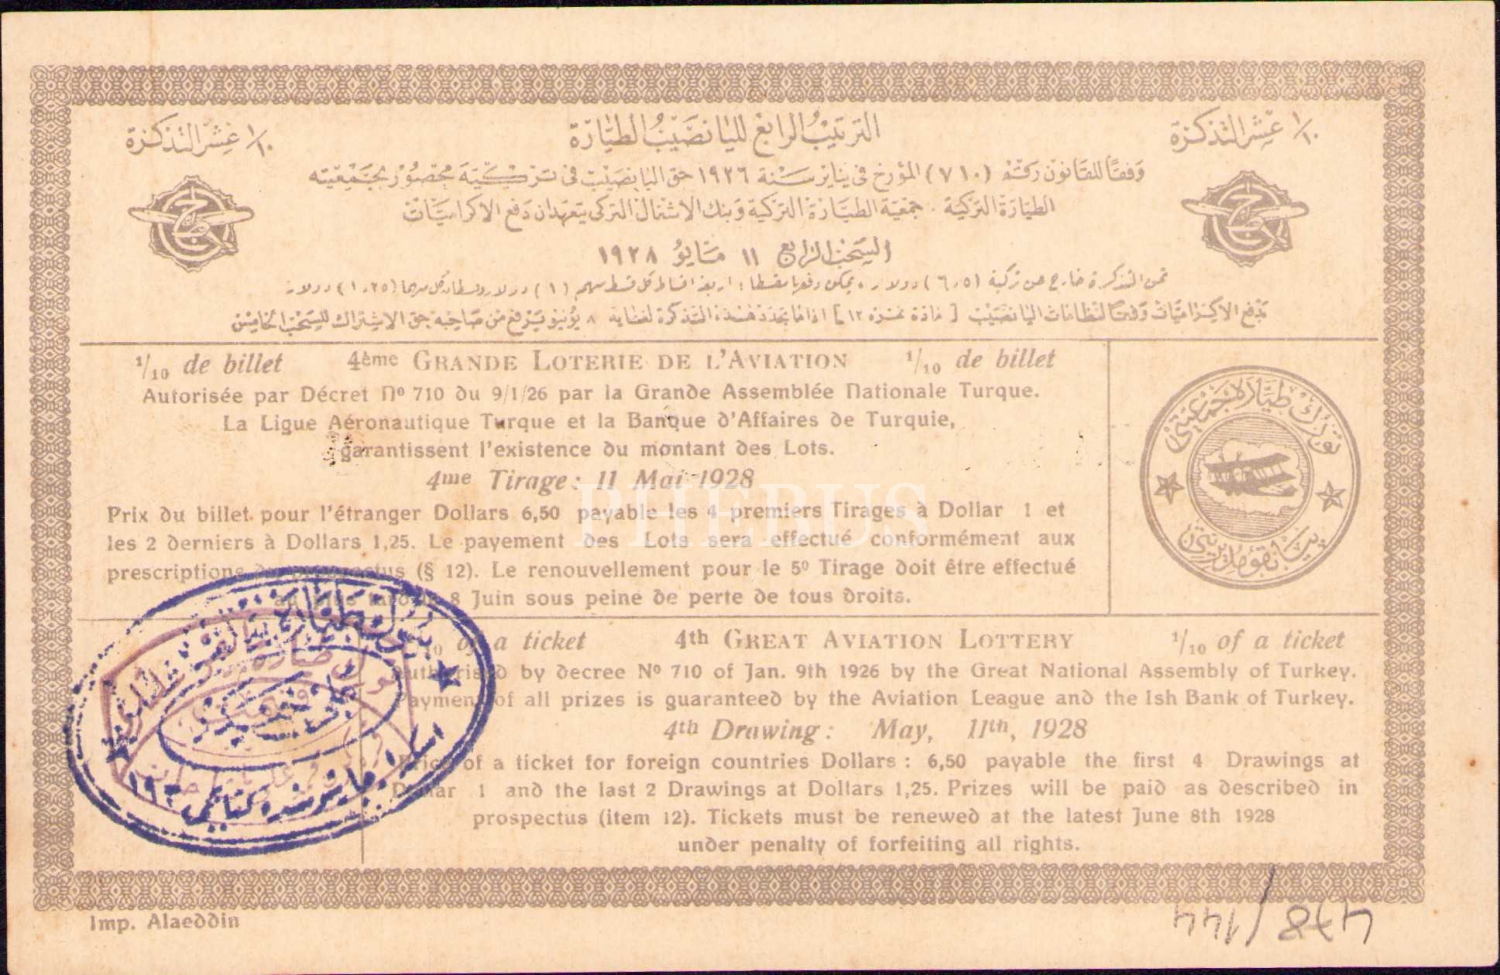 ١/١٠ عشر التذكرة
الترتيب الرابع لليانصيب الطيارة
١/١٠ عشر التذكرة
وفقا للقانون رقم (٧١٠) المؤرخ في يناير سنة ١٩٢٦ حق اليانصيب في تركية محصور بجمعية
الطيارة التركية . جمعية الطيارة التركية وبنك الاشغال التركي يتعهدان دفع الاكراميات
السحب الرابع ١١ مايو ١٩٢٨
ثمن التذكرة خارج عن تركية (٦,٥) دولار يمكن دفعها مقسطا : اربعة اقساط كل قسط (١) دولار (١,٢٥) دولار
تدفع الاكراميات وفقا لنظامات اليانصيب [ مادة نمرة ١٢ ] اذا ما تجدد هذه التذكرة لغاية ٨ يونيو من صاحبه حق الاشتراك للسحب الخامس
1/10 de billet 4ème GRANDE LOTERIE DE L'AVIATION 1/10 de billet
Autorisée par Décret No 710 du 9/1/26 par la Grande Assemblée Nationale Turque.
La Ligue Aéronautique Turque et la Banque d'Affaires de Turquie,
garantissent l'existence du montant des Lots.
4me Tirage: 11 Mai 1928
Prix du billet pour l'étranger Dollars 6,50 payable les 4 premiers Tirages à Dollar 1 et
les 2 derniers à Dollars 1,25. Le payement des Lots sera effectué conformément aux
prescriptions (§ 12). Le renouvellement pour le 5e Tirage doit être effectué
8 Juin sous peine de perte de tous droits.
تورك طياره جمعيتى
پيانقو مديريتى
PHEBUS
of a ticket 4th GREAT AVIATION LOTTERY 1/10 of a ticket
Authorised by decree No 710 of Jan. 9th 1926 by the Great National Assembly of Turkey.
Payment of all prizes is guaranteed by the Aviation League and the Ish Bank of Turkey.
4th Drawing: May, 11th, 1928
Price of a ticket for foreign countries Dollars : 6,50 payable the first 4 Drawings at
Dollar 1 and the last 2 Drawings at Dollars 1,25. Prizes will be paid as described in
prospectus (item 12). Tickets must be renewed at the latest June 8th 1928
under penalty of forfeiting all rights.
Imp. Alaeddin
478/144